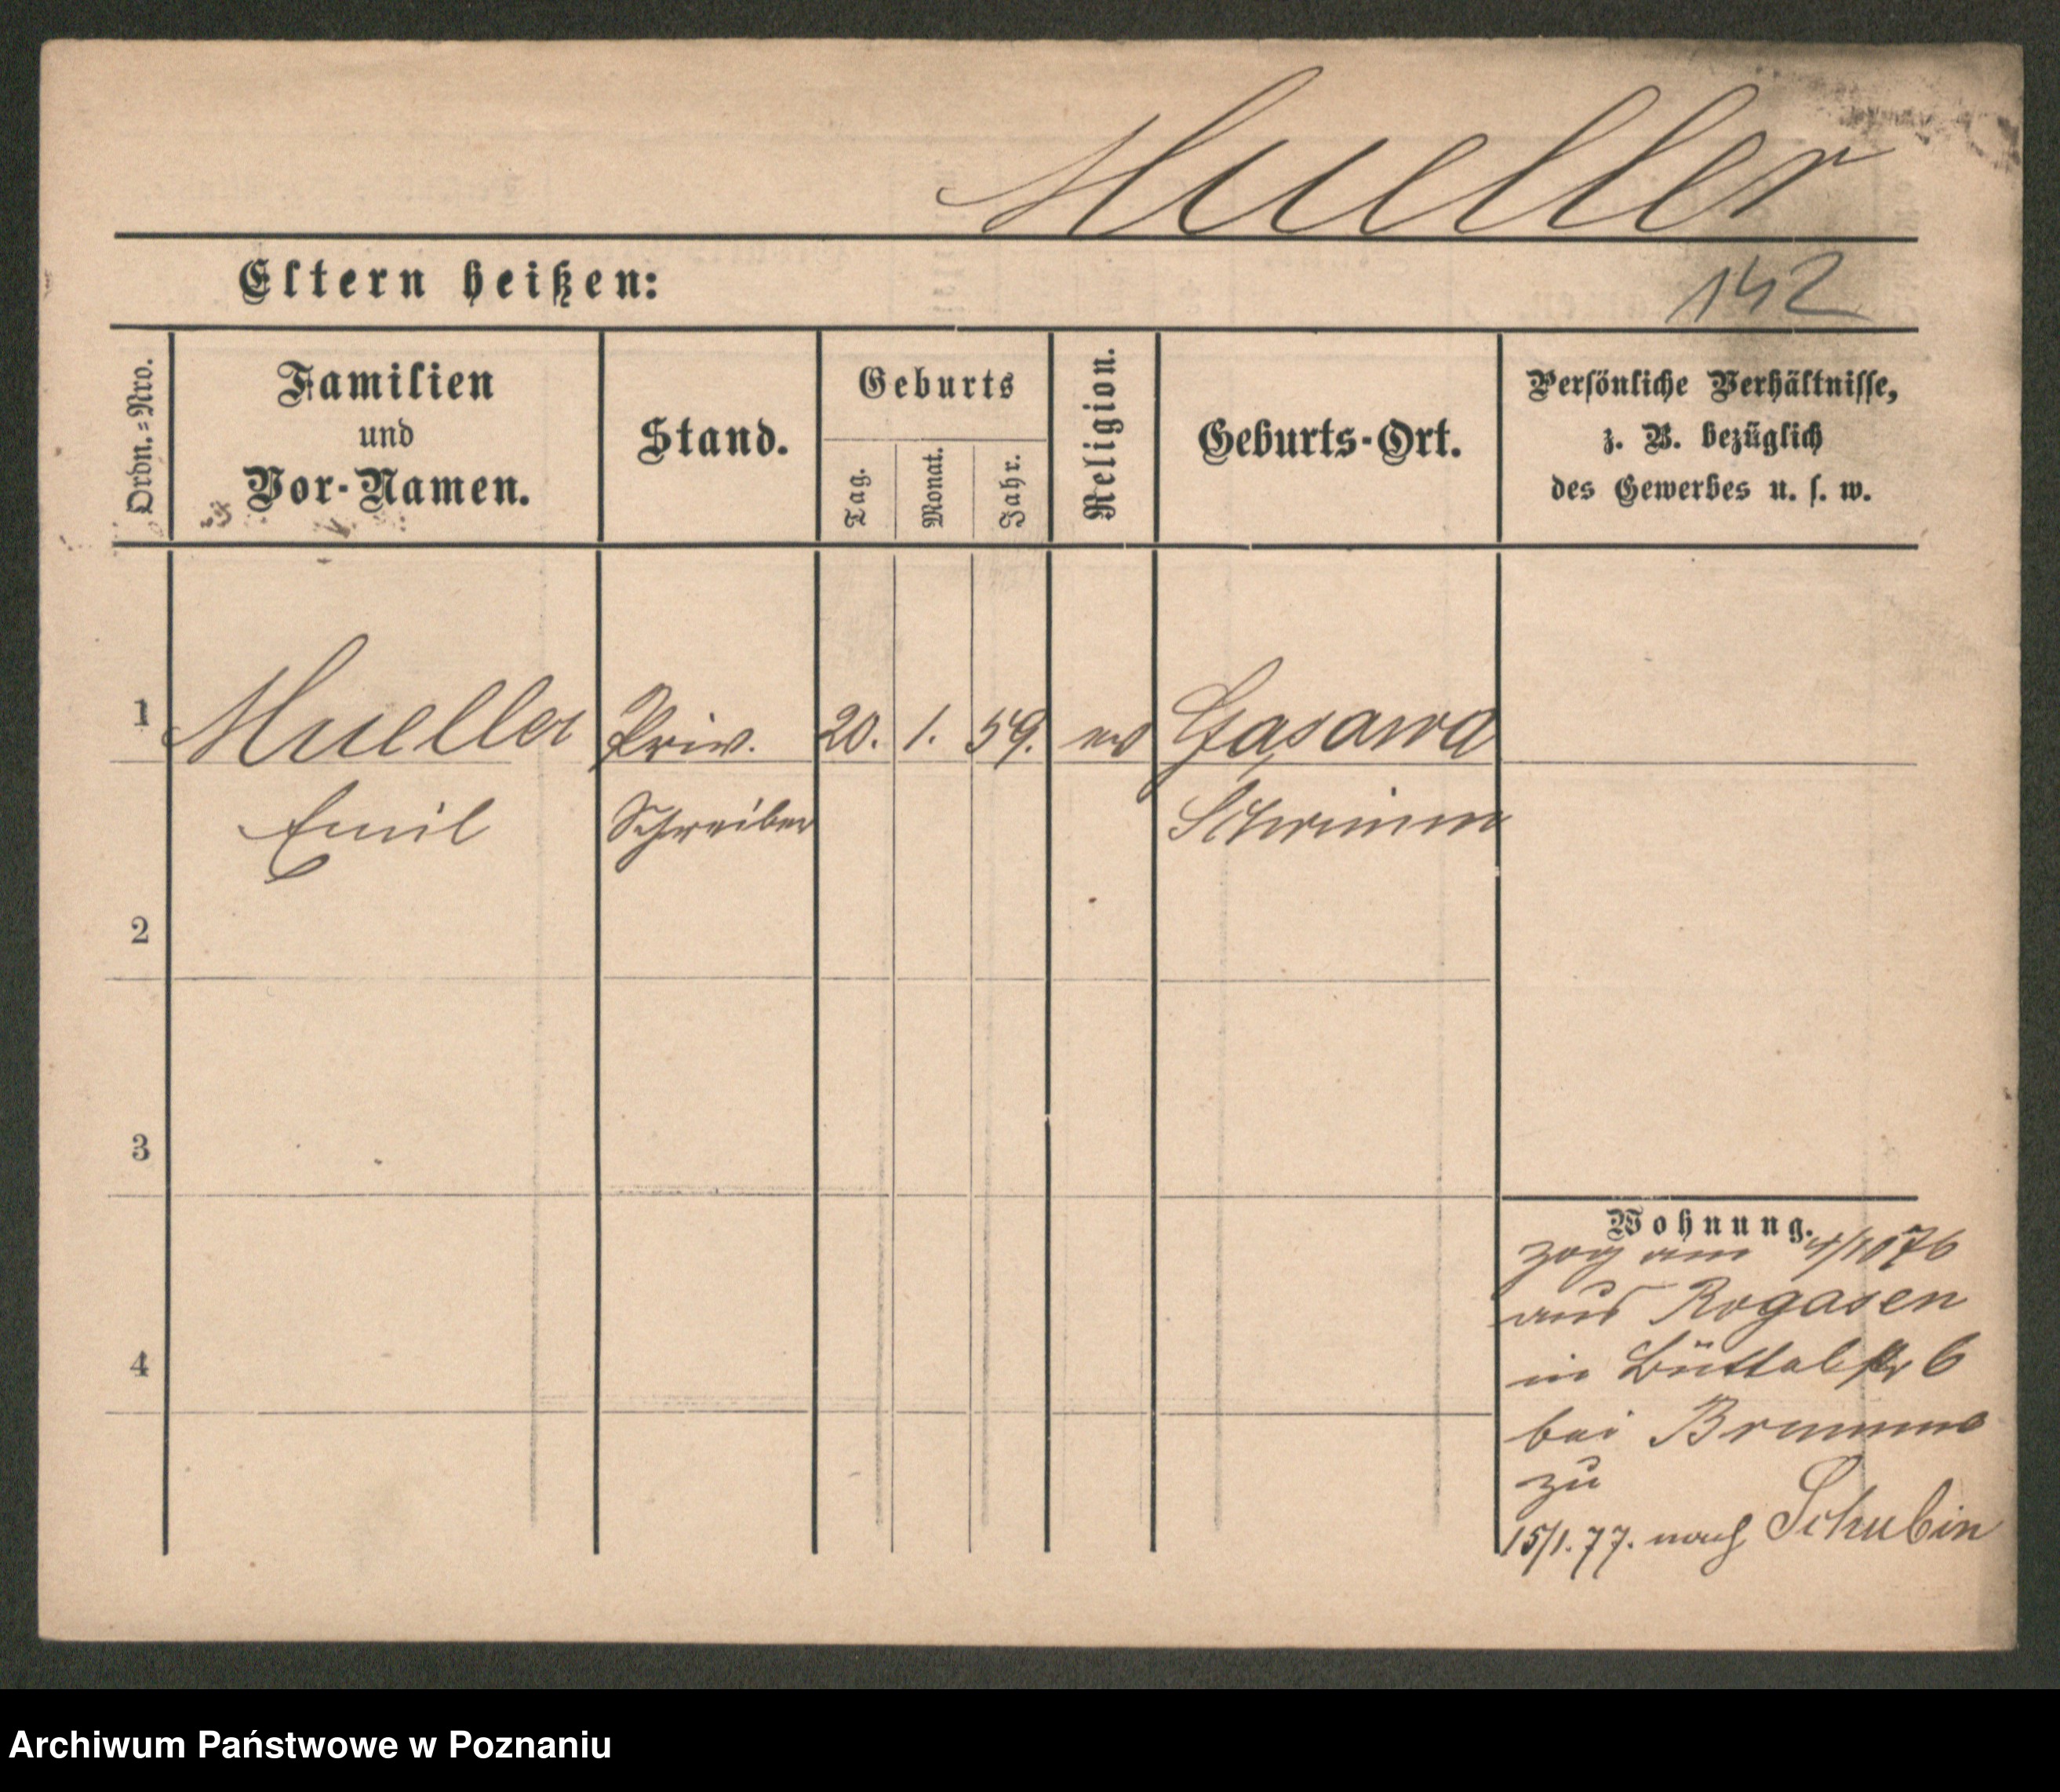 Mueller
Eltern heißen:
142
Ordn.=Nro.
Familien
und
Vor-Namen.
Stand.
Geburts
Tag.
Monat.
Jahr.
Religion.
Geburts-Ort.
Persönliche Verhältnisse,
z. B. bezüglich
des Gewerbes u. s. w.
1 Mueller Priv. 20. 1. 59. ev Gąsawa
Emil Schreiber Schrimm
2
3
4
Wohnung.
zog am 4/10 76
aus Rogasen
in Büttelstr 6
bei Brumme
zu
15/1. 77. nach Schubin
Archiwum Państwowe w Poznaniu